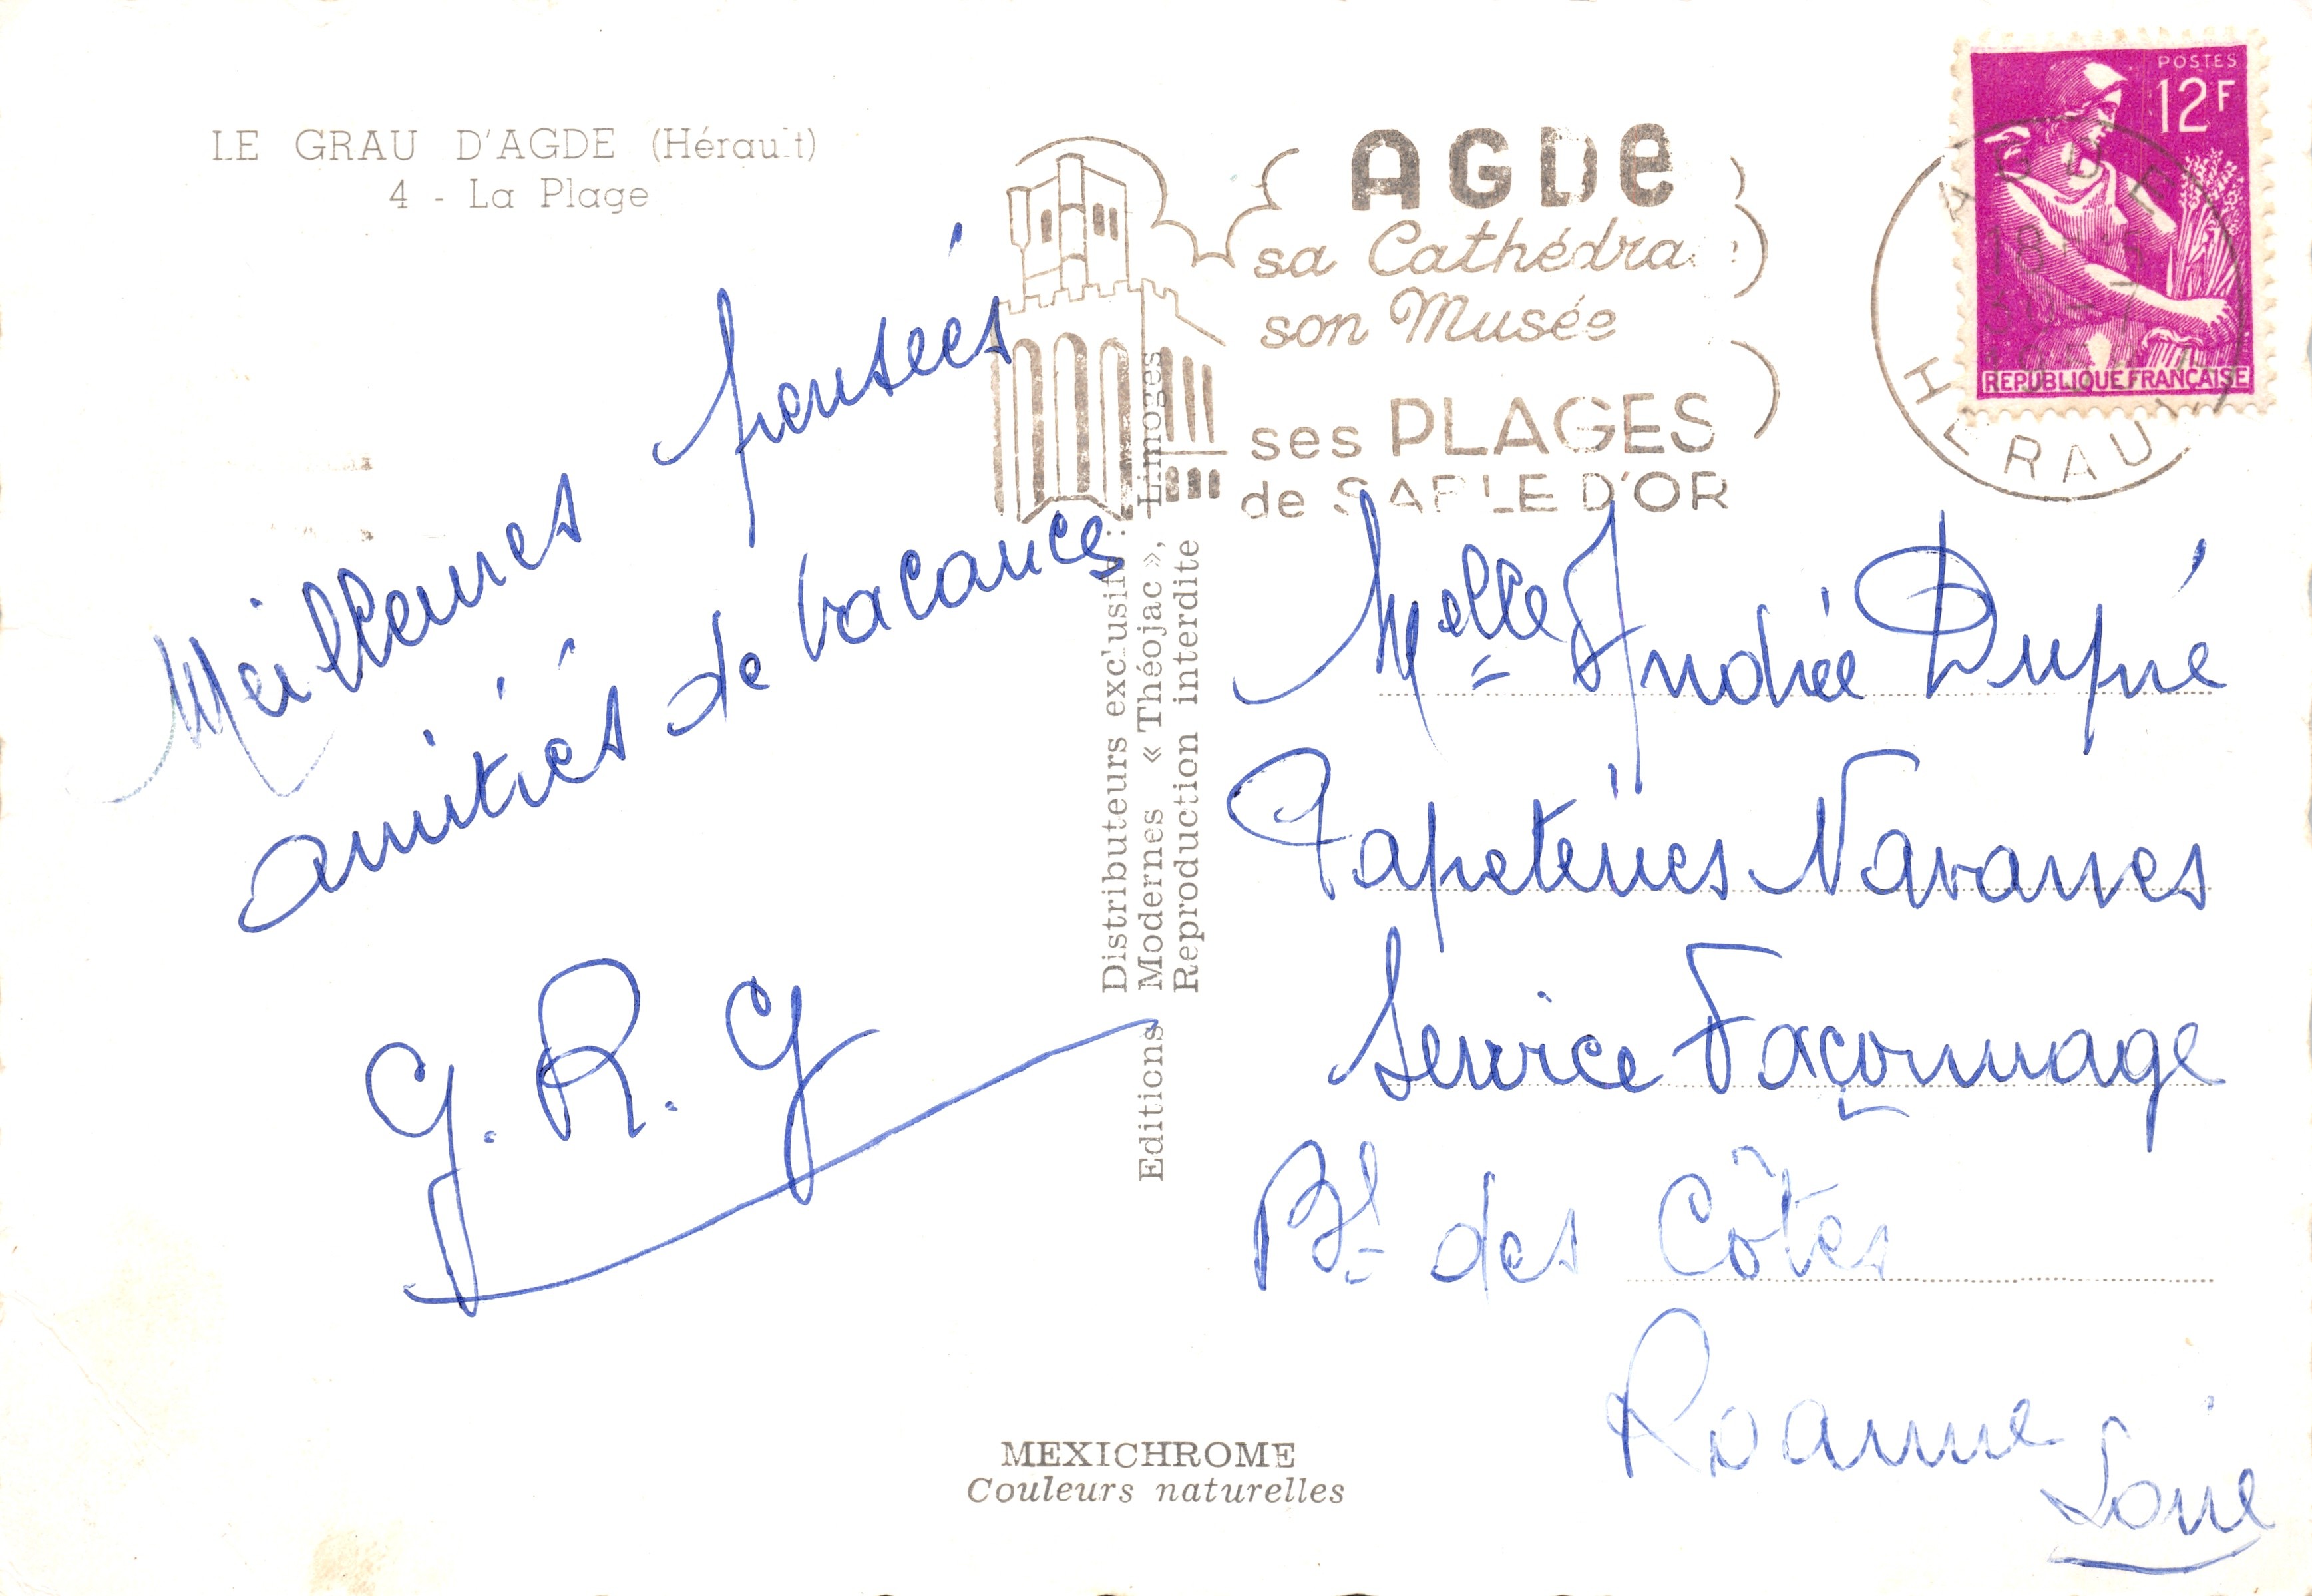 LE GRAU D'AGDE (Hérault)
4 - La Plage
Meilleures pensées
amitiés de vacances
G. R. G
Distributeurs exclusifs :
Editions Modernes « Théojac », Limoges
Reproduction interdite
MEXICHROME
Couleurs naturelles
AGDE
sa Cathédrale
son Musée
ses PLAGES
de SABLE D'OR
POSTES
12F
REPUBLIQUE FRANÇAISE
AGDE
18
HERAULT
Melle Andrée Dupré
Papeteries Navarres
Service Façonnage
Bd des Côtes
Roanne
Loire